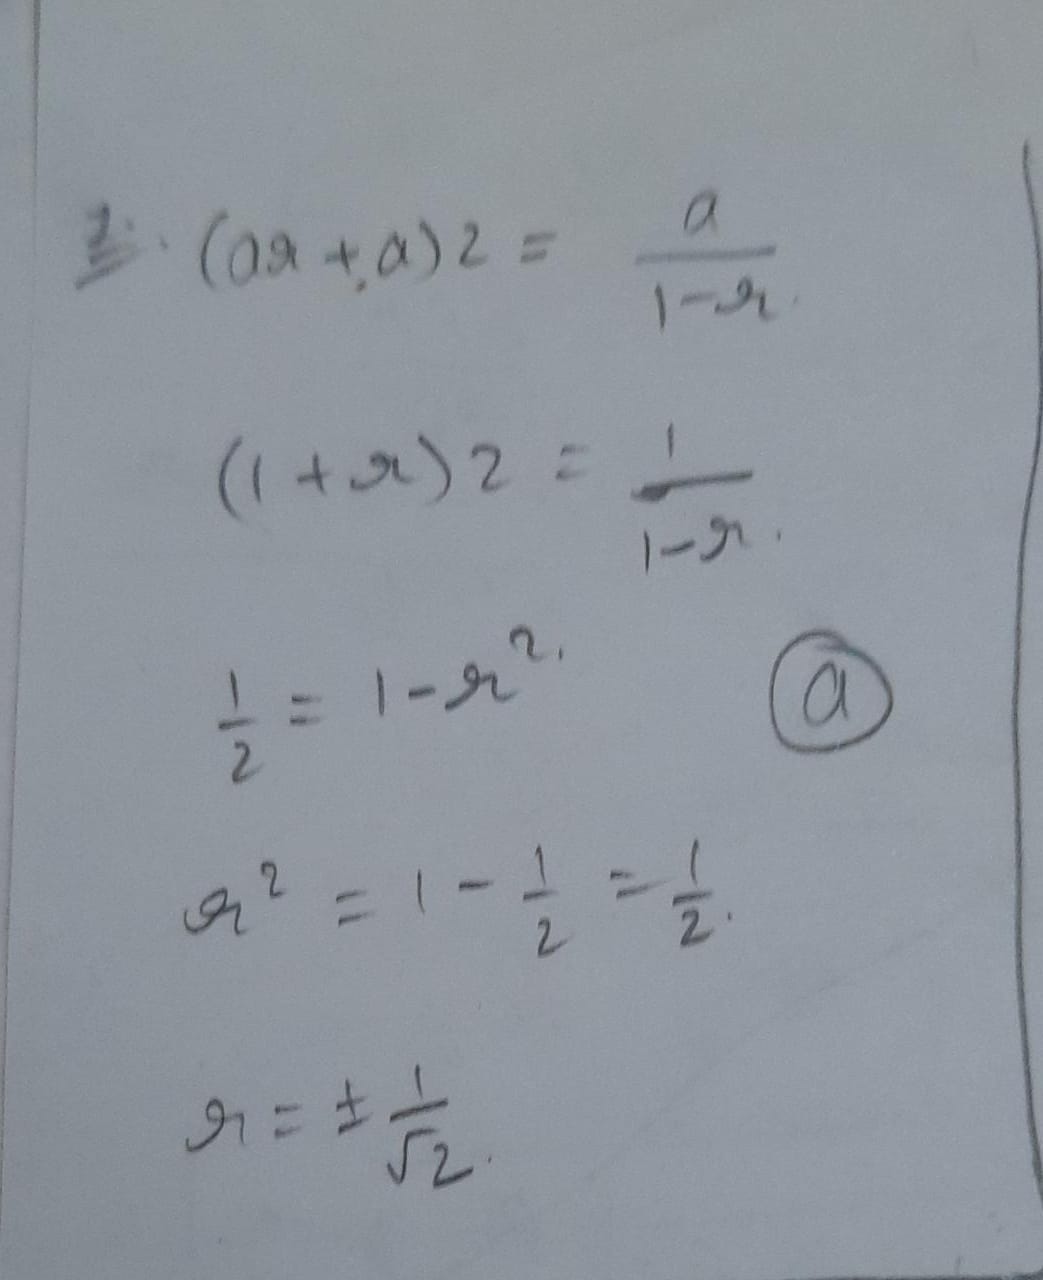 2. (ar + a) 2 = a/(1-r).
(1 + r) 2 = 1/(1-r).
1/2 = 1 - r².
(a)
r² = 1 - 1/2 = 1/2.
r = ± 1/√2.